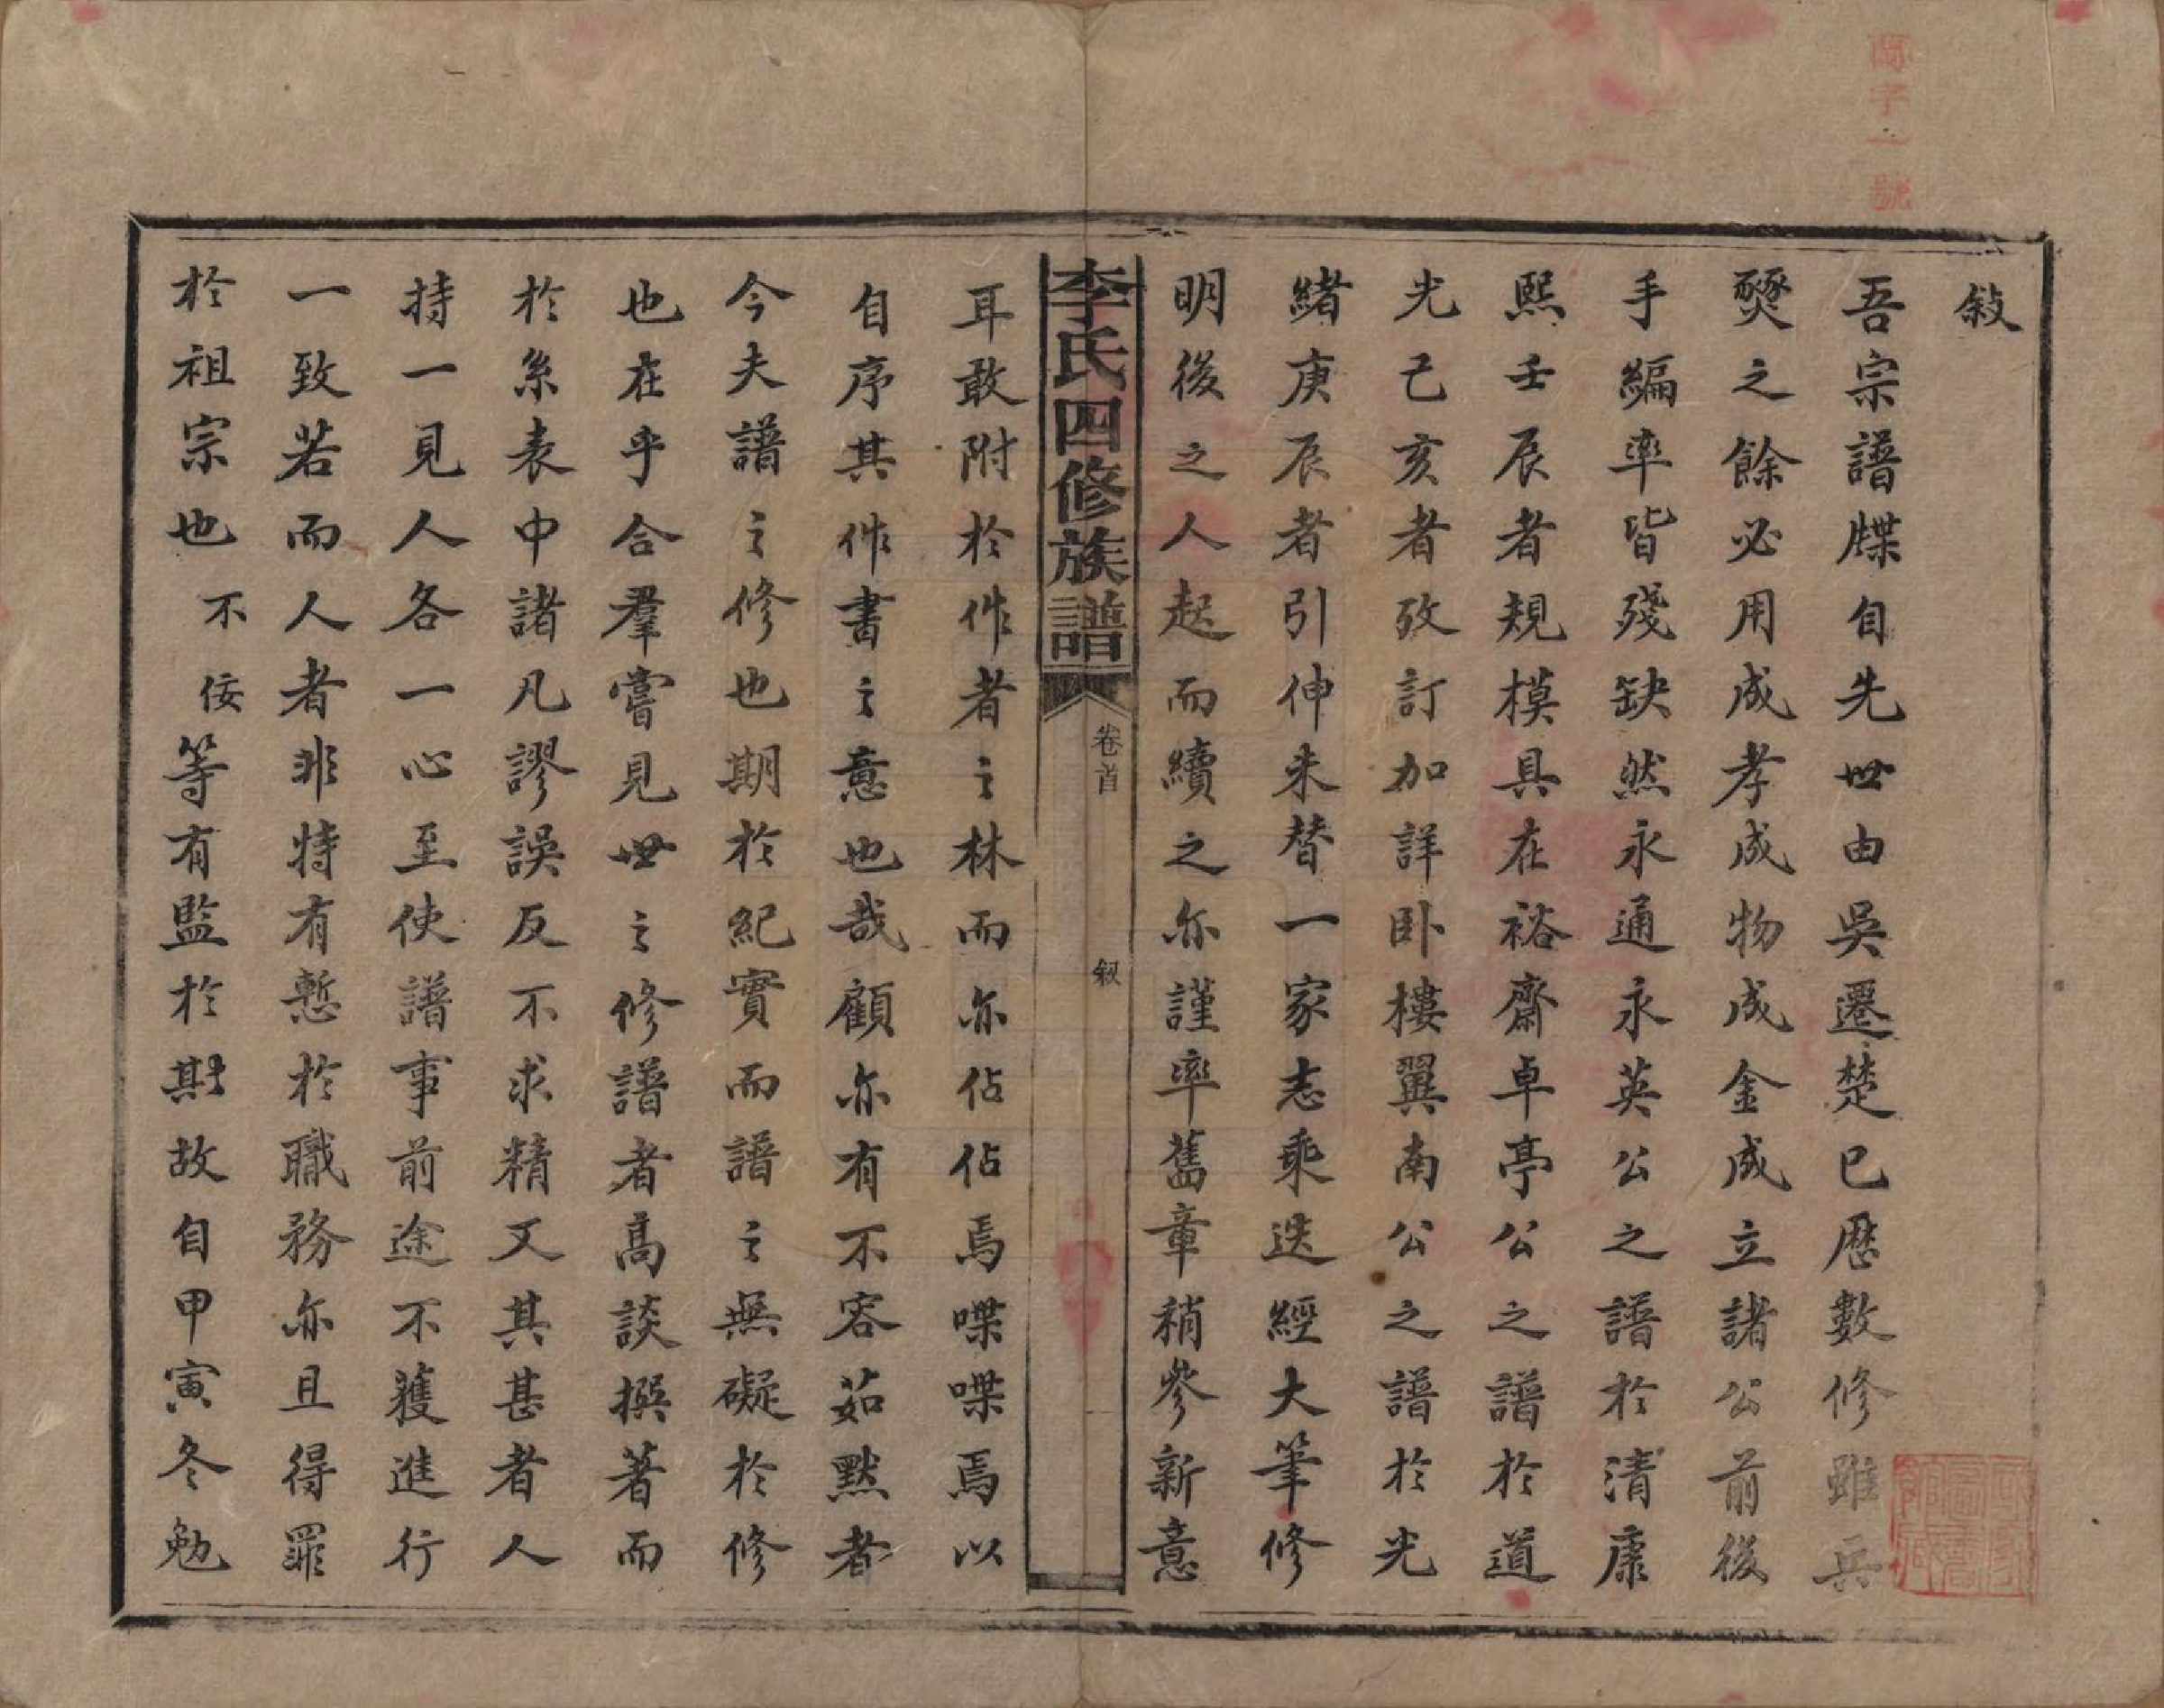 敍
吾宗譜牒自先世由吳遷楚已歷數修雖兵
燹之餘必用成孝成物成金成立諸公前後
手編率皆殘缺然永通永英公之譜於清康
熙壬辰者規模具在裕齋卓亭公之譜於道
光己亥者攷訂加詳卧樓翼南公之譜於光
緒庚辰者引伸未替一家志乘迭經大筆修
明後之人起而續之亦謹率舊章稍參新意
李氏四修族譜
卷首
敍
耳敢附於作者之林而亦佔佔焉喋喋焉以
自序其作書之意也哉顧亦有不容茹默者
今夫譜之修也期於紀實而譜之無礙於修
也在乎合羣嘗見世之修譜者高談撰著而
於系表中諸凡謬誤反不求精又其甚者人
持一見人各一心至使譜事前途不獲進行
一致若而人者非特有慙於職務亦且得罪
於祖宗也不佞等有監於斯故自甲寅冬勉